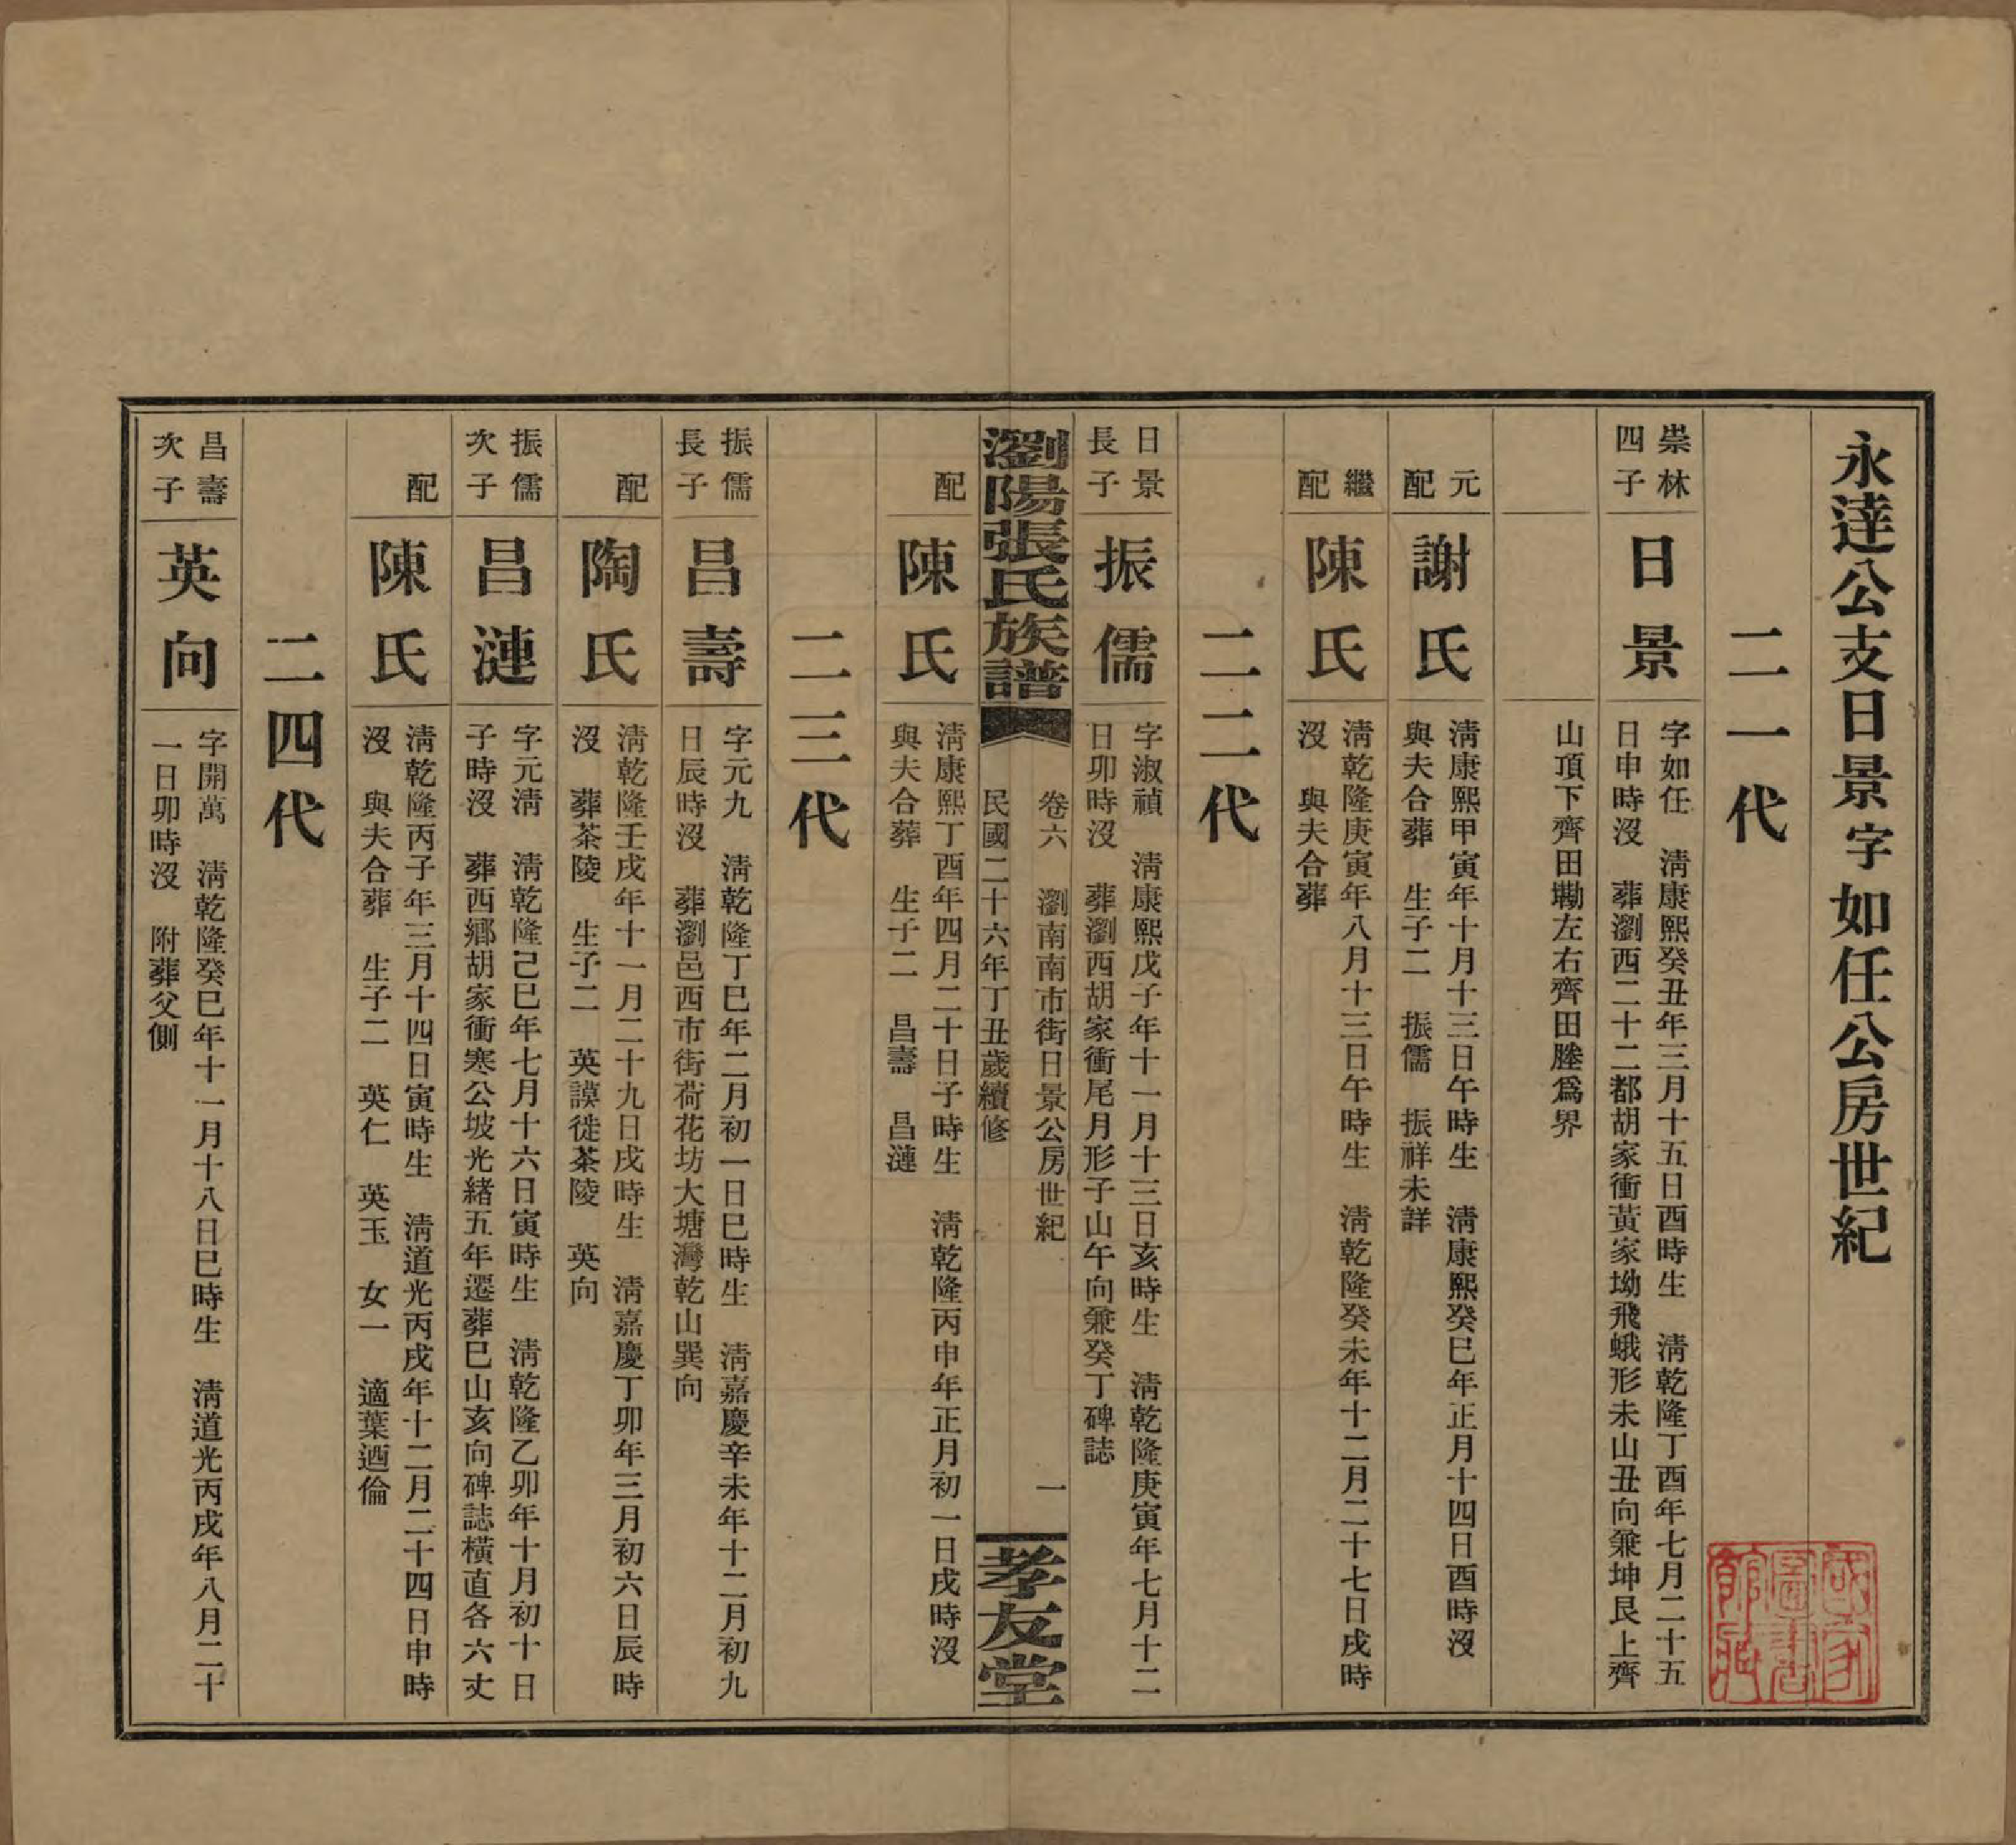 永達公支日景字如任公房世紀
二一代
崇林
四子
日景
字如任　清康熙癸丑年三月十五日酉時生　清乾隆丁酉年七月二十五
日申時沒　葬瀏西二十二都胡家衝黃家坳飛蛾形未山丑向兼坤艮上齊
山頂下齊田墈左右齊田塍爲界
元
配
謝氏
清康熙甲寅年十月十三日午時生　清康熙癸巳年正月十四日酉時沒
與夫合葬　生子二　振儒　振祥未詳
繼
配
陳氏
清乾隆庚寅年八月十三日午時生　清乾隆癸未年十二月二十七日戌時
沒　與夫合葬
二二代
日景
長子
振儒
字淑禎　清康熙戊子年十一月十三日亥時生　清乾隆庚寅年七月十二
日卯時沒　葬瀏西胡家衝尾月形子山午向兼癸丁碑誌
瀏陽張氏族譜
卷六　瀏南南市街日景公房世紀　一
民國二十六年丁丑歲續修
孝友堂
配
陳氏
清康熙丁酉年四月二十日子時生　清乾隆丙申年正月初一日戌時沒
與夫合葬　生子二　昌壽　昌漣
二三代
振儒
長子
昌壽
字元九　清乾隆丁巳年二月初一日巳時生　清嘉慶辛未年十二月初九
日辰時沒　葬瀏邑西市街荷花坊大塘灣乾山巽向
配
陶氏
清乾隆壬戌年十一月二十九日戌時生　清嘉慶丁卯年三月初六日辰時
沒　葬茶陵　生子二　英謨徙茶陵　英向
振儒
次子
昌漣
字元清　清乾隆己巳年七月十六日寅時生　清乾隆乙卯年十月初十日
子時沒　葬西鄉胡家衝寒公坡光緒五年遷葬巳山亥向碑誌橫直各六丈
配
陳氏
清乾隆丙子年三月十四日寅時生　清道光丙戌年十二月二十四日申時
沒　與夫合葬　生子二　英仁　英玉　女一　適葉迺倫
二四代
昌壽
次子
英向
字開萬　清乾隆癸巳年十一月十八日巳時生　清道光丙戌年八月二十
一日卯時沒　附葬父側